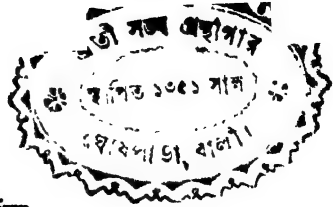 তী সঙ্ঘ গ্রন্থাগার
স্থাপিত ১৩৫১ সাল
ঘোষপাড়া, বালী।